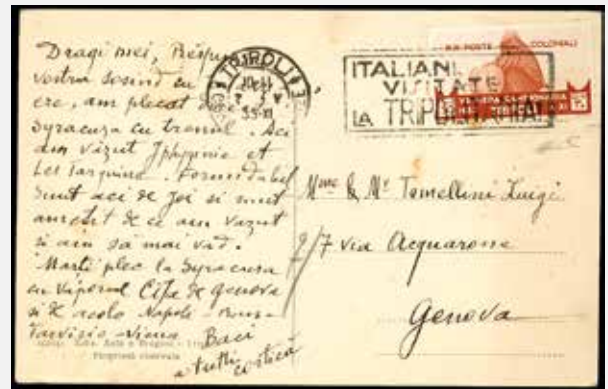 Dragi mei,
vostru sosind cu
ere, am plecat
Syracuza cu trenul. Aci
am vazut Iphygenie et
Les Tarquins. Formidabil
Sunt aci de joi si sunt
de ce am vazut
si am sa mai vad.
Marti plec la Syracusa
cu vaporul Citta de Genova
si de acolo Napoli - Roma
Tarvisio - Viena
Baci
a tutti
costică
Proprietà riservata
TRIPOLI
ITALIANI
VISITATE
LA TRIPOLITANIA
R.R. POSTE COLONIALI
Mme & Mr Tomellini Luigi
2/7 via Acquarone
Genova